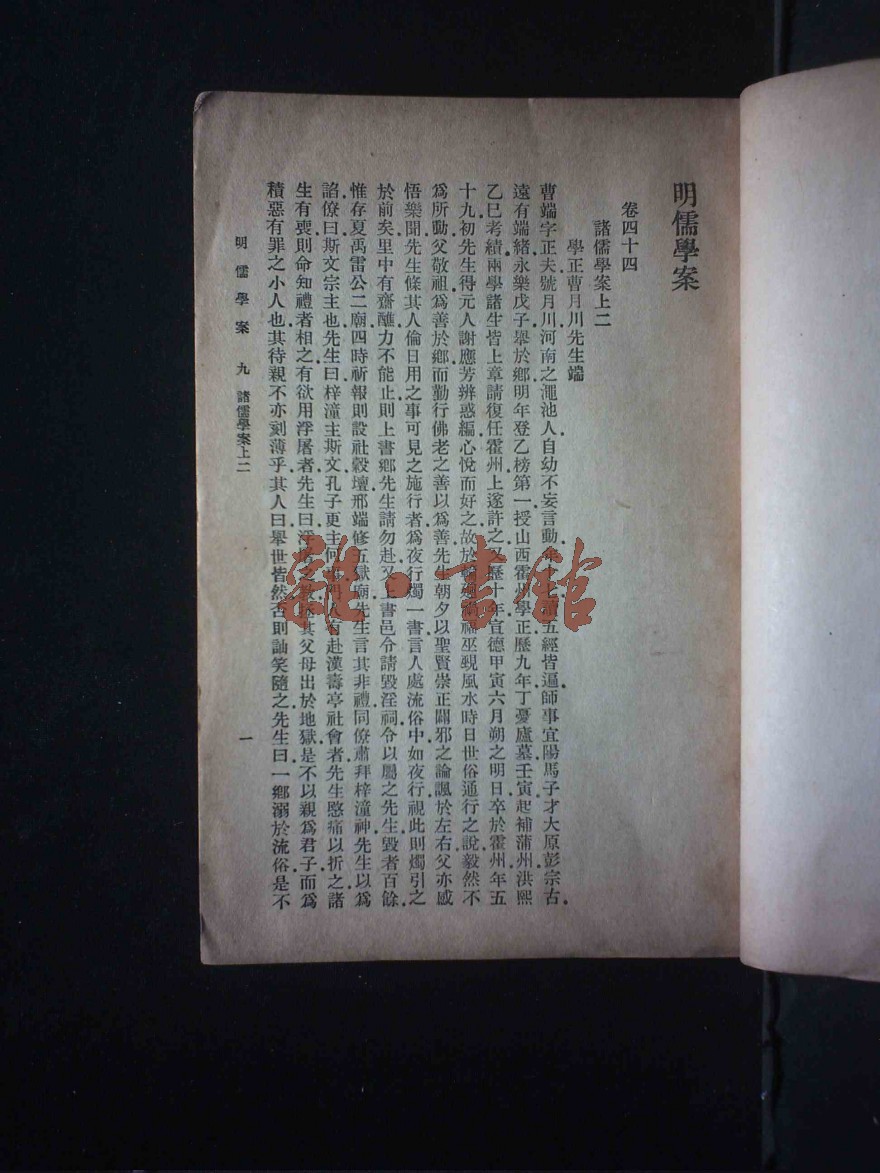 明儒學案
卷四十四
諸儒學案上二
學正曹月川先生端
曹端字正夫號月川河南之澠池人自幼不妄言動年十七讀五經皆遍師事宜陽馬子才大原彭宗古
遠有端緒永樂戊子舉於鄉明年登乙榜第一授山西霍州學正歷九年丁憂廬墓壬寅起補蒲州洪熙
乙巳考績兩學諸生皆上章請復任霍州上遂許之又歷十年宣德甲寅六月朔之明日卒於霍州年五
十九初先生得元人謝應芳辨惑編心悅而好之故於輪迴禍福巫覡風水時日世俗通行之說毅然不
爲所動父敬祖爲善於鄉而勤行佛老之善以爲善先生朝夕以聖賢崇正闢邪之論諷於左右父亦感
悟樂聞先生條其人倫日用之事可見之施行者爲夜行燭一書言人處流俗中如夜行視此則燭引之
於前矣里中有齋醮力不能止則上書鄉先生請勿赴又上書邑令請毀淫祠令以屬之先生毀者百餘
惟存夏禹雷公二廟四時祈報則設社穀壇邢端修五嶽廟先生言其非禮同僚肅拜梓潼神先生以爲
諂僚曰斯文宗主也先生曰梓潼主斯文孔子更主何事門人有赴漢壽亭社會者先生愍痛以折之諸
生有喪則命知禮者相之有欲用浮屠者先生曰浮屠之教拯其父母出於地獄是不以親爲君子而爲
積惡有罪之小人也其待親不亦刻薄乎其人曰舉世皆然否則訕笑隨之先生曰一鄉溺於流俗是不
明儒學案 九 諸儒學案上二 一
雜·書館